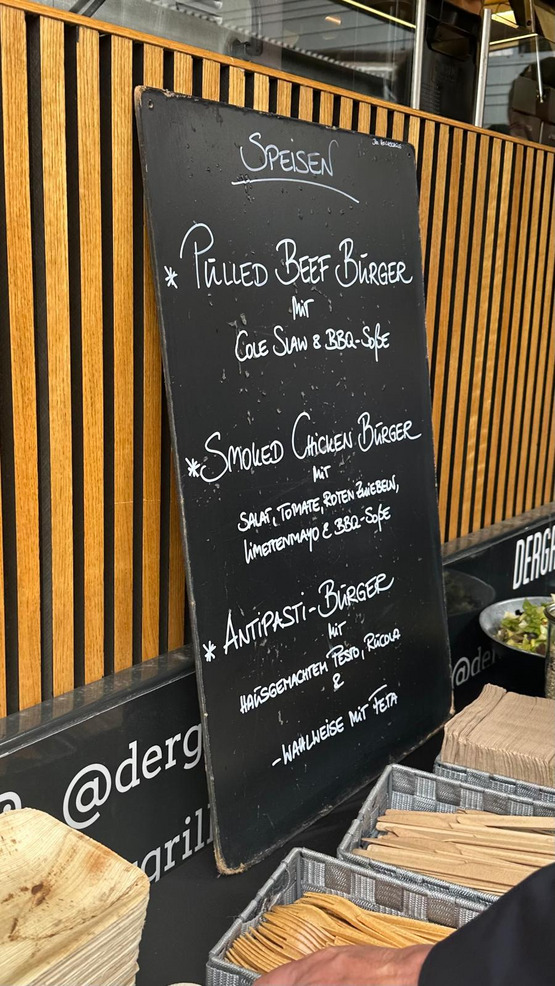 SPEISEN
* PULLED BEEF BURGER
MIT
COLE SLAW & BBQ-SOßE
* SMOKED CHICKEN BURGER
MIT
SALAT, TOMATE, ROTEN ZWIEBELN,
LIMETTENMAYO & BBQ-SOßE
* ANTIPASTI-BURGER
MIT
HAUSGEMACHTEM PESTO, RUCOLA
&
-WAHLWEISE MIT FETA
DERG
@derg
@de
grill